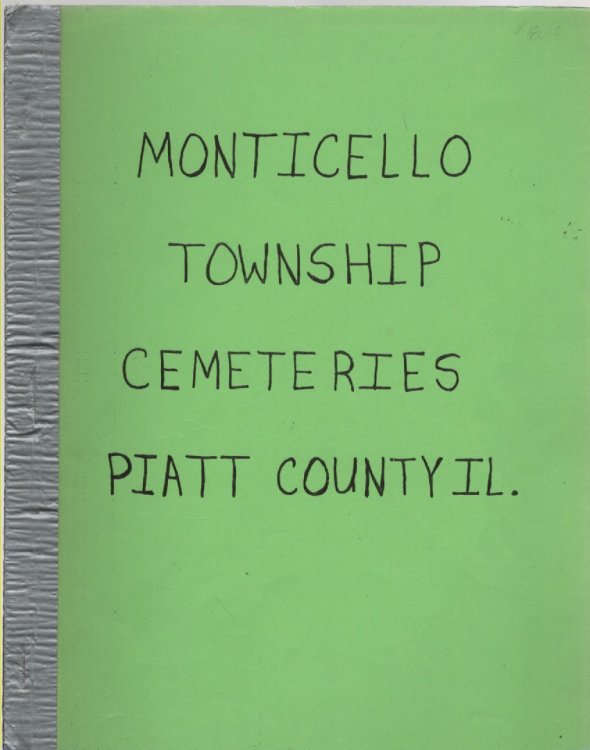 MONTICELLO
TOWNSHIP
CEMETERIES
PIATT COUNTY IL.